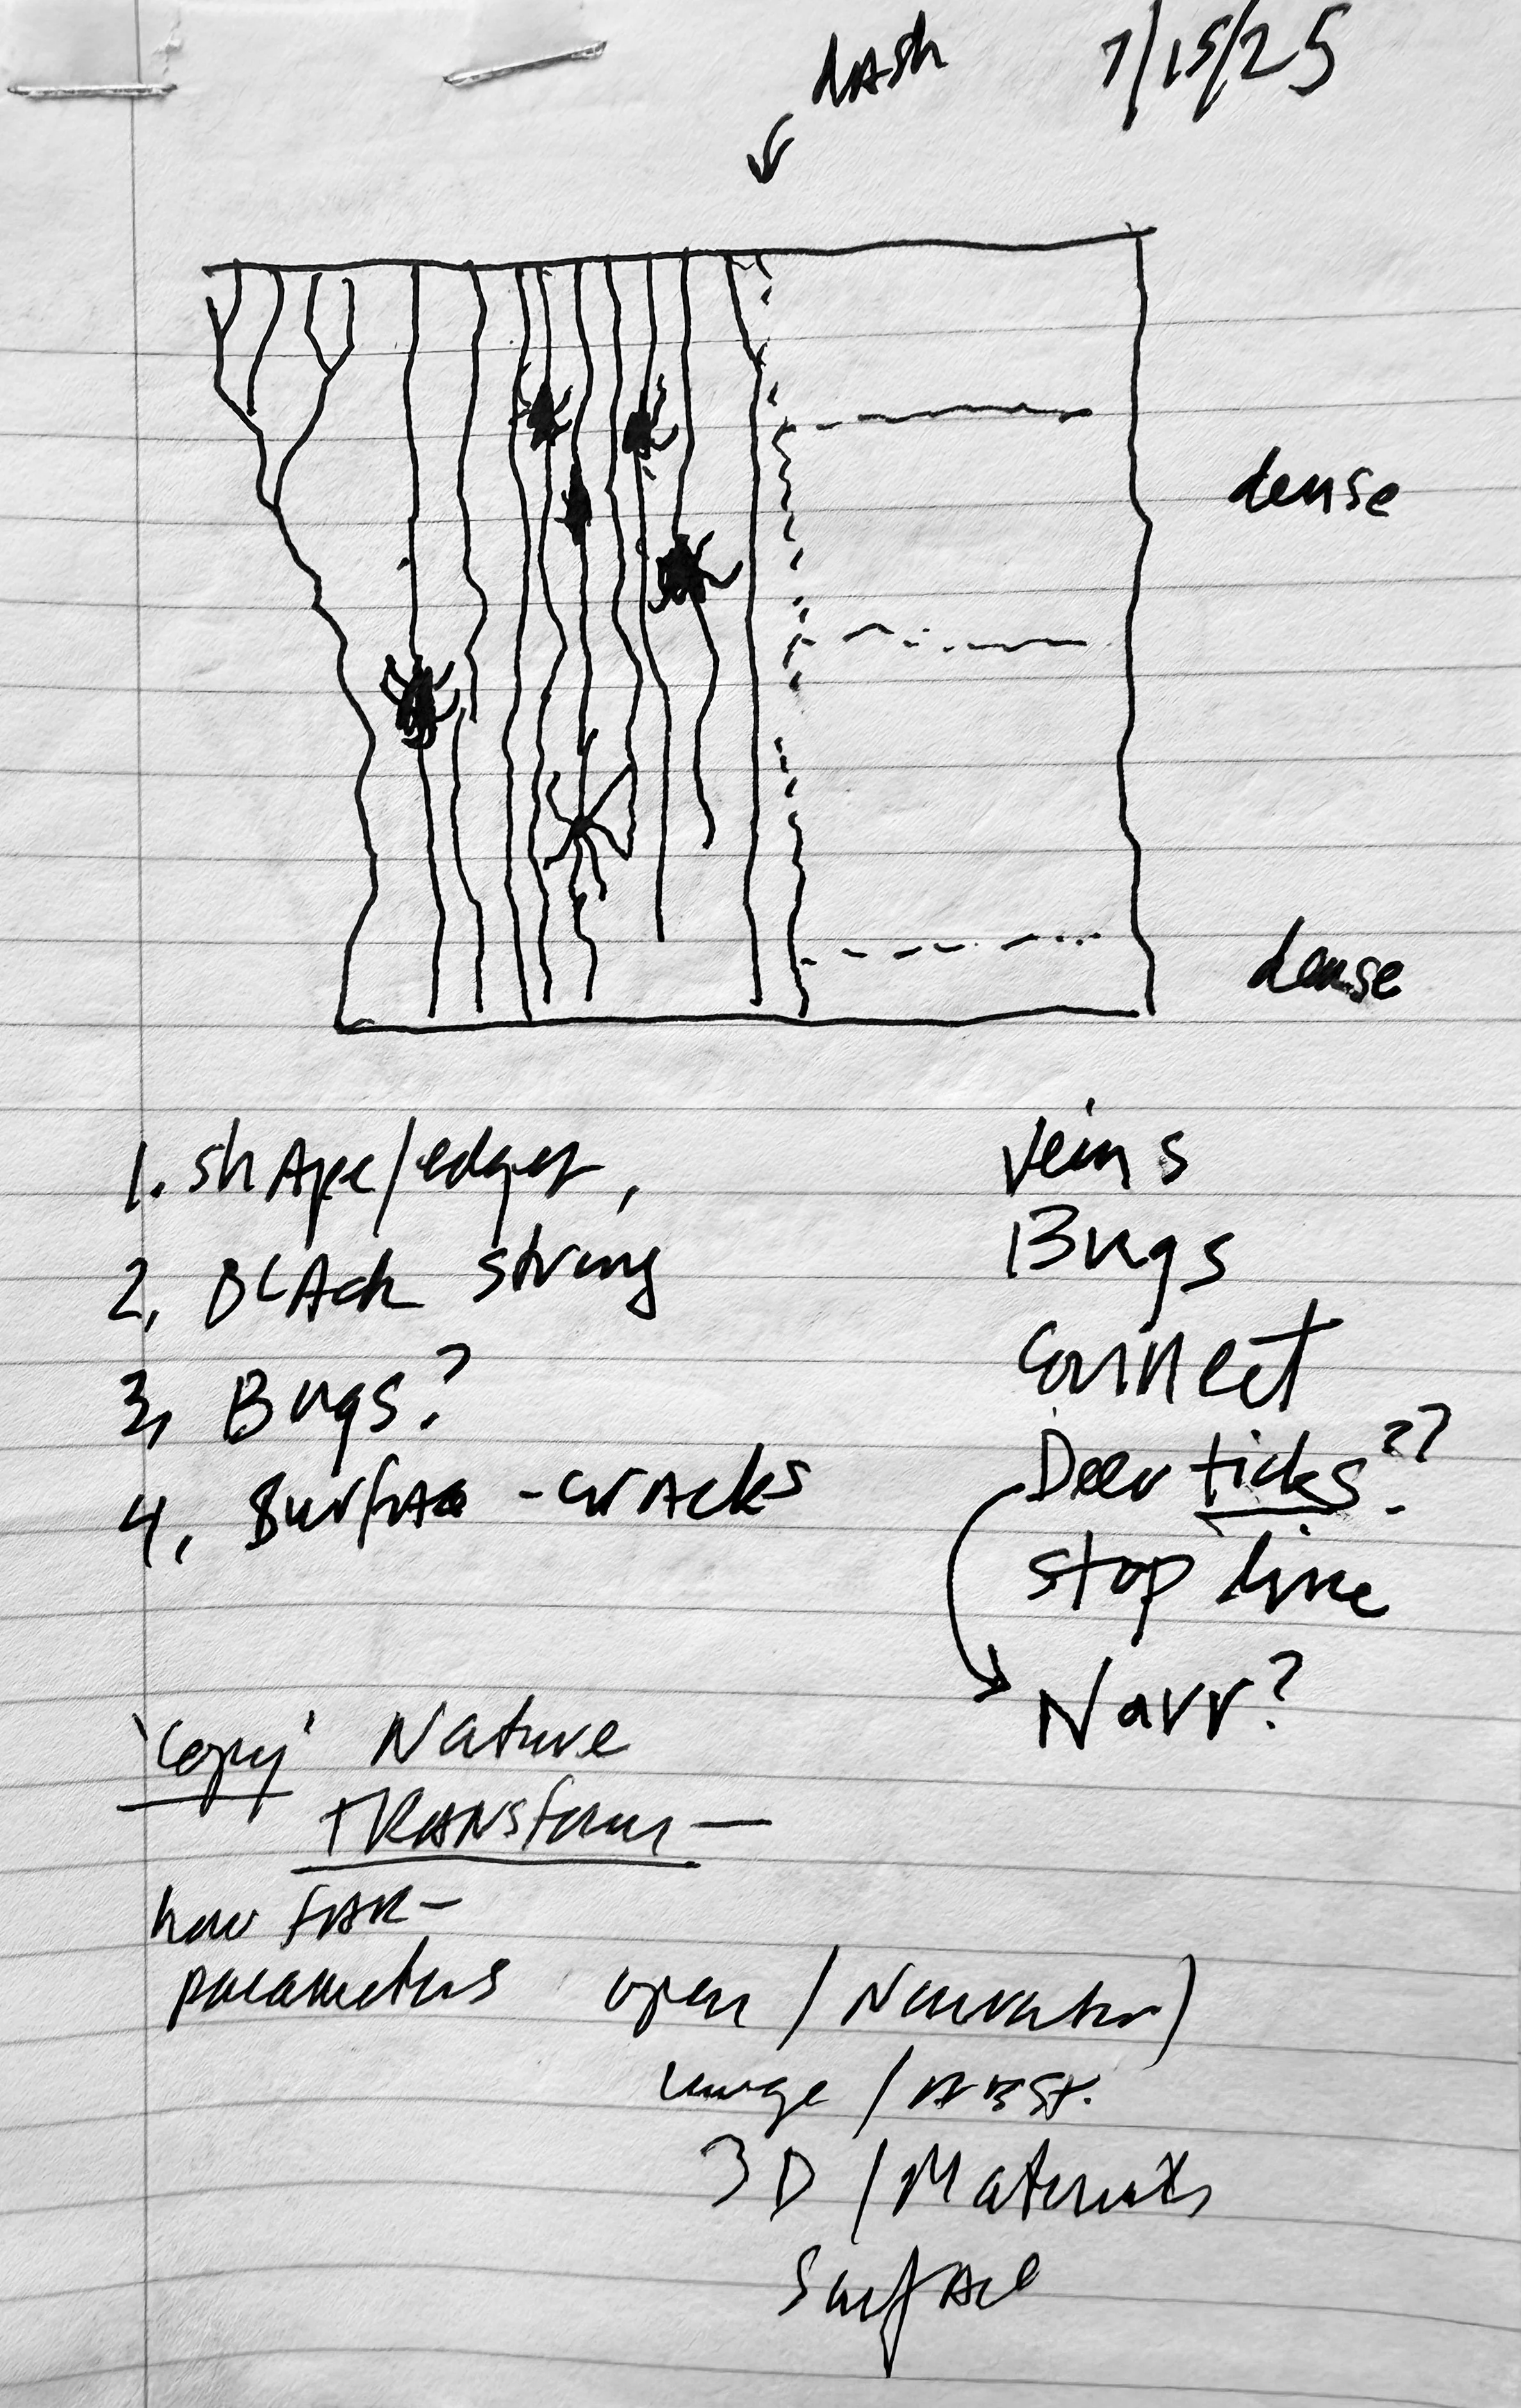 dash 7/15/25
dense
dense
1. shape/edges,
2. Black string
3, Bugs?
4, Surface - cracks
Veins
Bugs
Connect
Deer ticks??
stop line
Narr?
'Copy' Nature
TRANSform —
how FAR —
parameters open / Narrative)
image / ABST.
3D / Materials
Surface